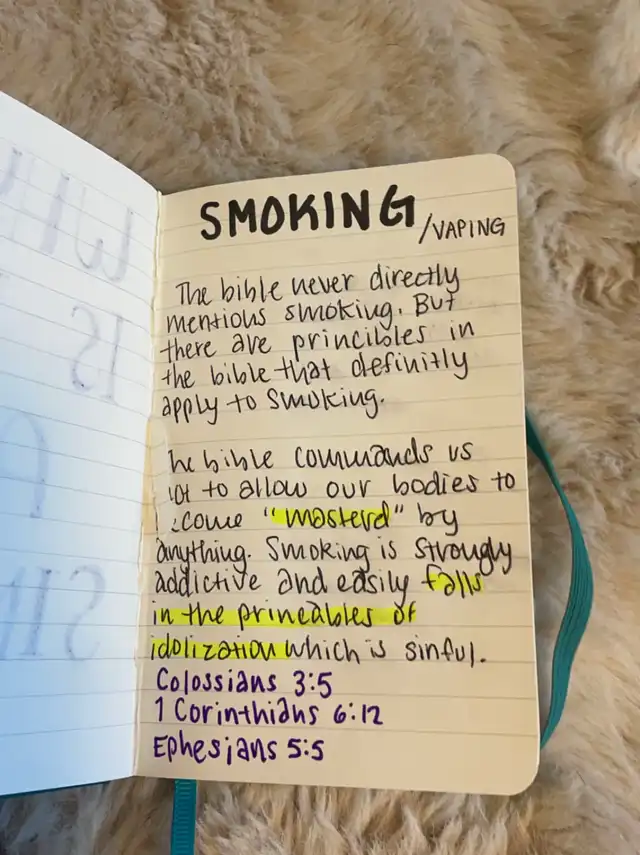 SMOKING
/VAPING
The bible never directly
mentions smoking. But
there are princibles in
the bible that definitly
apply to smoking.
he bible commands us
ot to allow our bodies to
come "masterd" by
anything. Smoking is strongly
addictive and easily falls
in the princables of
idolization which is sinful.
Colossians 3:5
1 Corinthians 6:12
Ephesians 5:5
WHY
IS
SIN